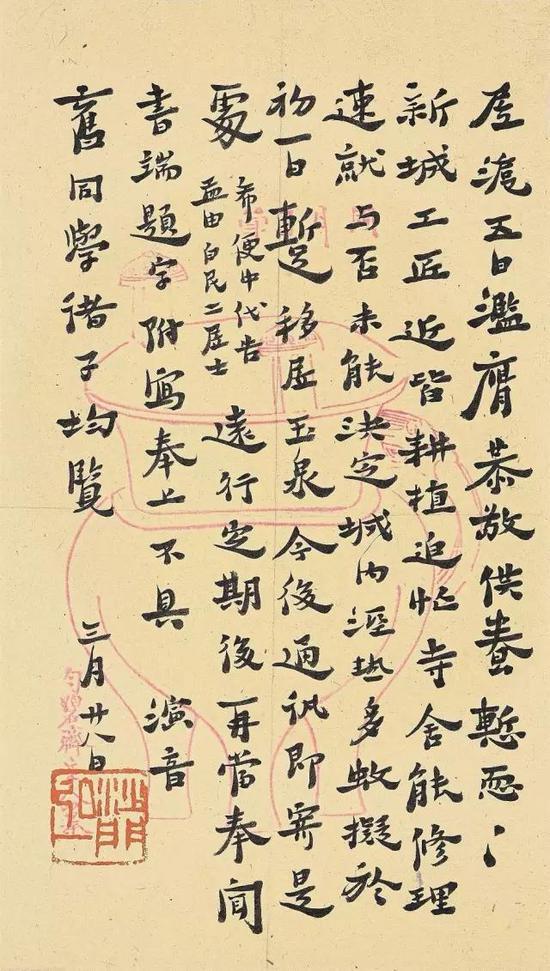 居滬五日濫膺恭敬供養慙恧〻
新城工匠近皆耕植迫忙寺舍能修理
速就与否未能決定城内溼热多蚊擬於
初一日暫移居玉泉今後通訊即寄是
處
希便中代告
益由白民二居士
遠行定期後再當奉聞
書端題字附寫奉上不具 演音
舊同學諸子均覽 三月廿八日
沙門
弘一